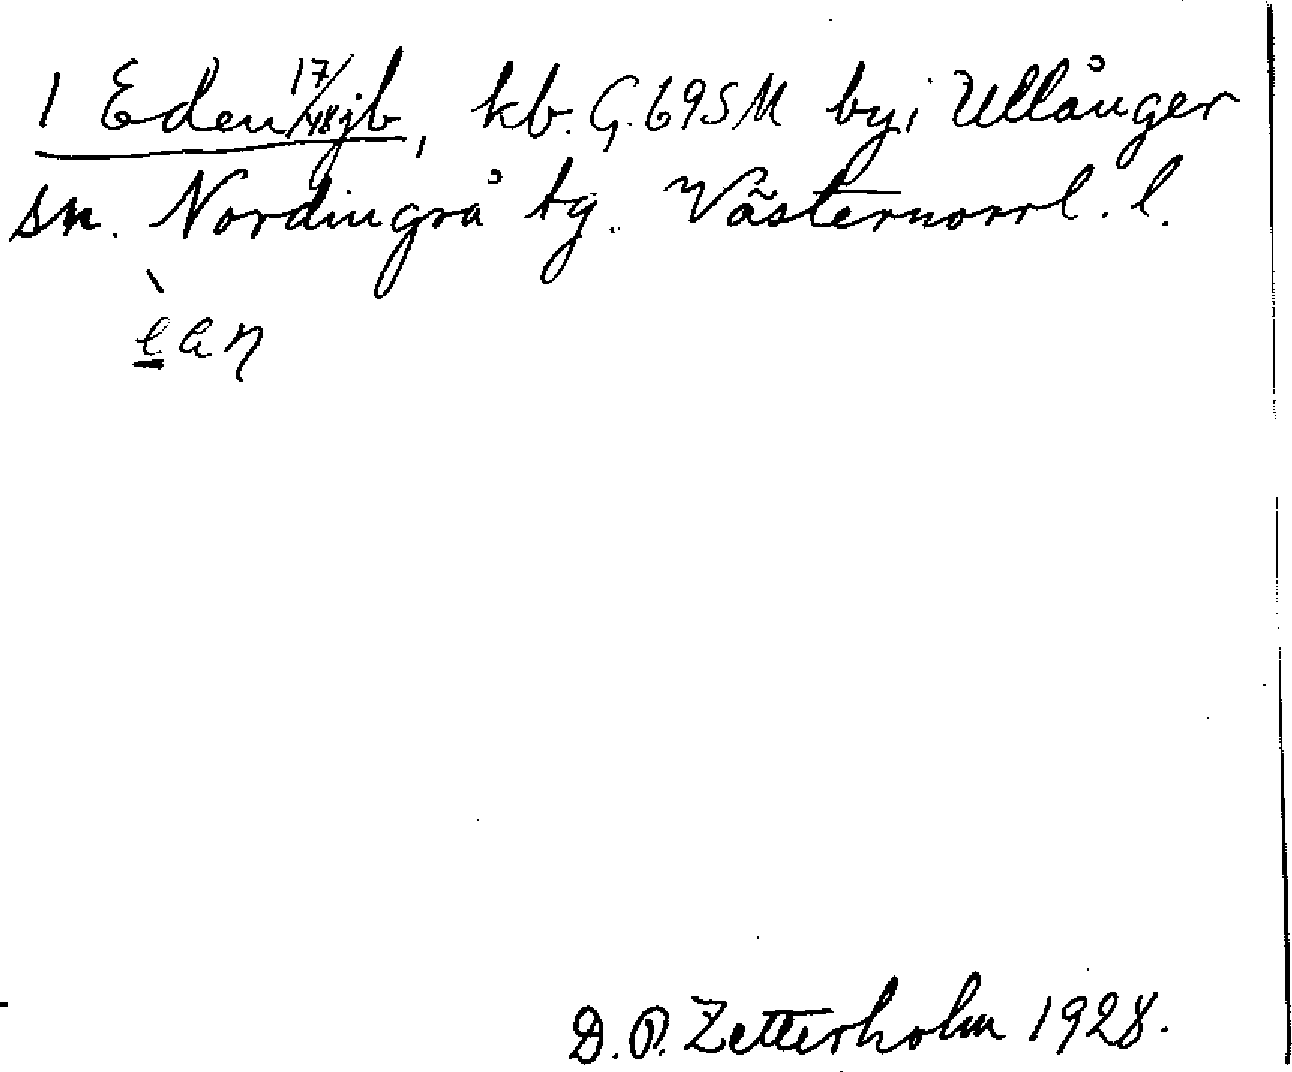 1 Eden 17/48 jb, kb. G. 695 M by i Ullånger
sn. Nordingrå tg. Västernorrl. l.
è̲aŋ
D. O. Zetterholm 1928.